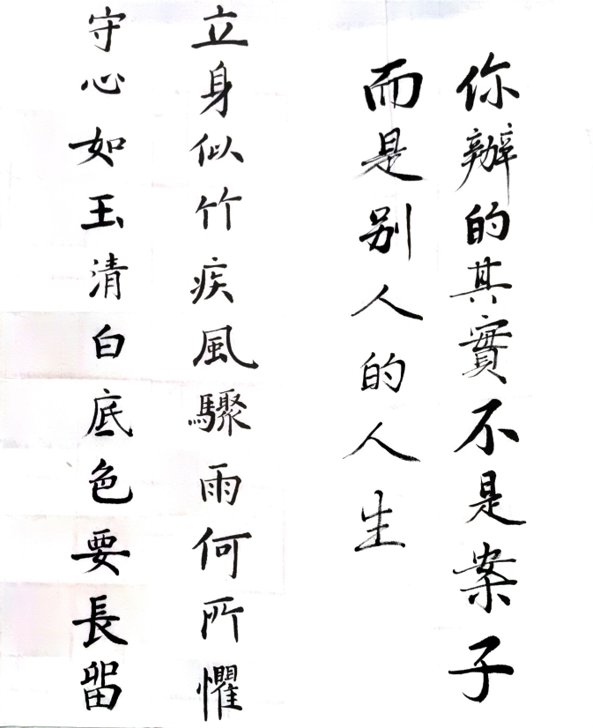 你辦的其實不是案子
而是别人的人生
立身似竹疾風驟雨何所懼
守心如玉清白底色要長留